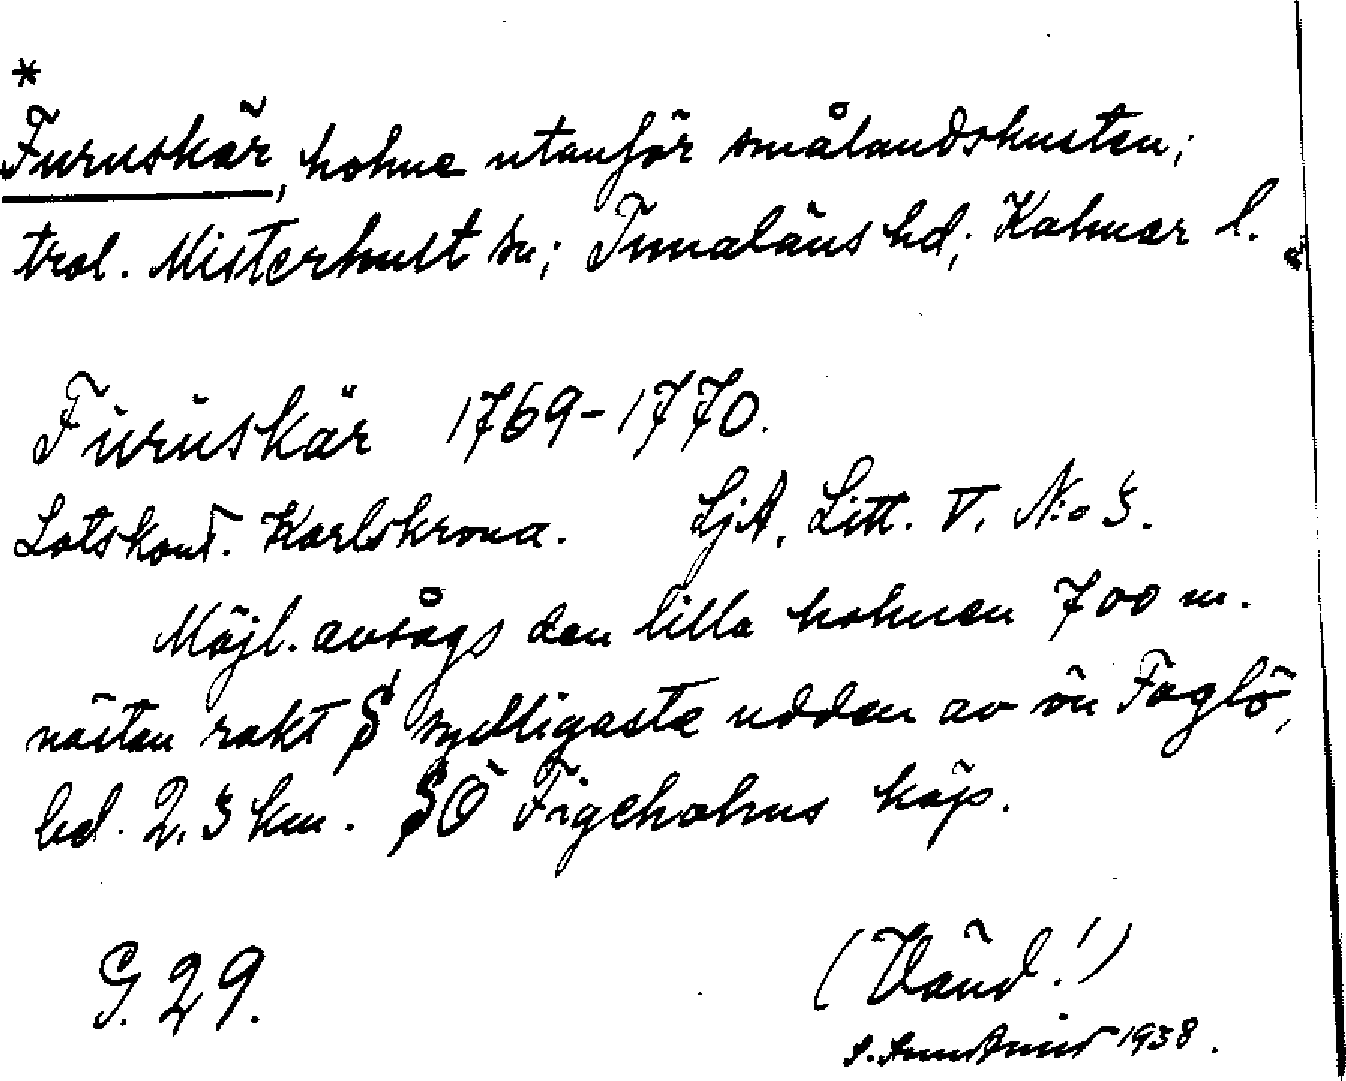 *
Furuskär, holme utanför smålandskusten;
trol. Misterhult sn; Tunaläns hd; Kalmar l.
Furuskär 1769-1770.
Lotskont. Karlskrona. LjA. Litt. V. N:o 3.
Möjl. avsågs den lilla holmen 700 m.
nästan rakt S sydligaste udden av ön Faglö,
bel. 2,3 km. SÖ Figeholms köp.
G. 29.
(Vänd!)
1938.